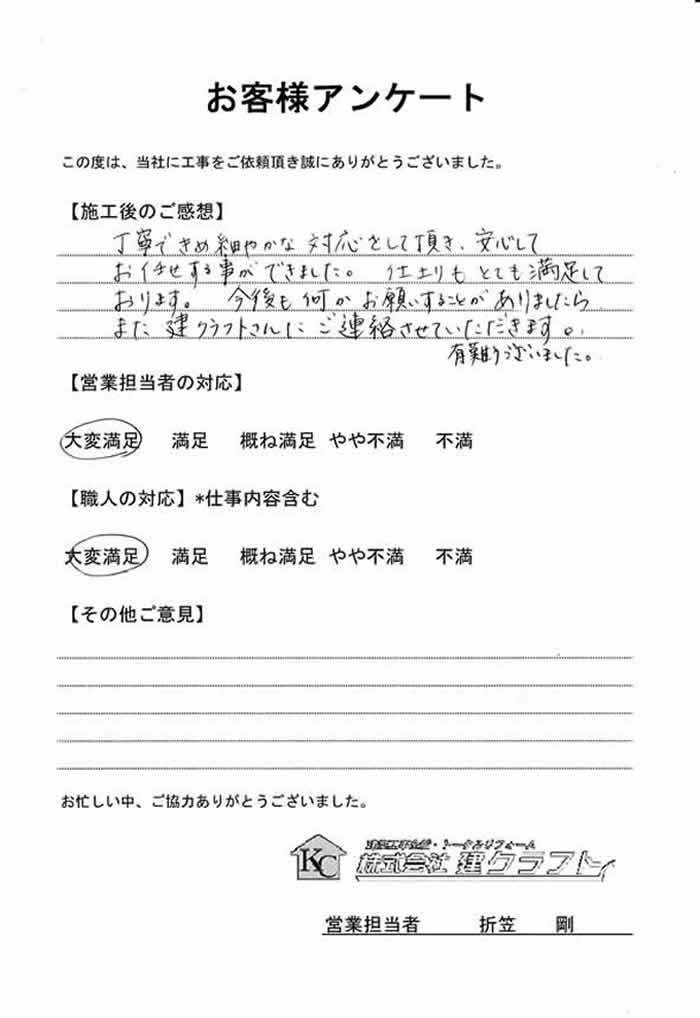 お客様アンケート
この度は、当社に工事をご依頼頂き誠にありがとうございました。
【施工後のご感想】
丁寧できめ細やかな対応をして頂き、安心して
お任せする事ができました。 仕上りもとても満足して
おります。 今後も何かお願いすることがありましたら
また建クラフトさんにご連絡させていただきます。
有難うございました。
【営業担当者の対応】
大変満足 満足 概ね満足 やや不満 不満
【職人の対応】*仕事内容含む
大変満足 満足 概ね満足 やや不満 不満
【その他ご意見】
お忙しい中、ご協力ありがとうございました。
KC
・トータルリフォーム
株式会社 建クラフト
営業担当者 折笠 剛